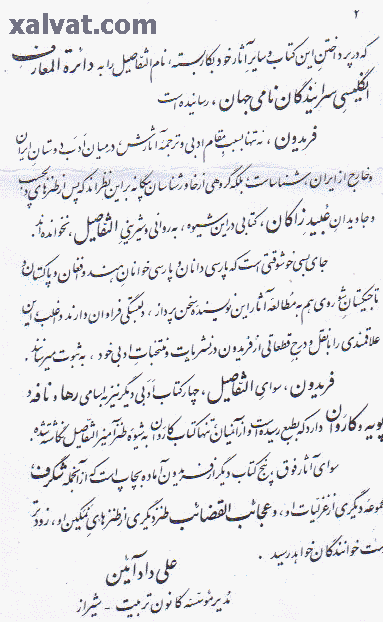 xalvat.com
۲
که در پرداختن این کتاب و سایر آثار خود بکار بسته، نام التفاصیل را به دائرة المعارف
انگلیسی سرایندگان نامی جهان، رسانیده است
فریدون، نه تنها بسبب مقام ادبی و ترجمهٔ آثارش در میان ادب دوستان ایران
و خارج از ایران، شناساست بلکه گروهی از خاورشناسان بیگانه براین نظرند که پس از طنزهای دلچسب
و جاویدان عبید زاکان، کتابی در این شیوه، به روانی و شیرینی التفاصیل، نخوانده‌اند.
جای بسی خوشوقتی است که پارسی دانان و پارسی خوانان هند و افغان و پاکستان و
تاجیکستان شوروی هم به مطالعه آثار این نویسنده سخن پرداز، دلبستگی فراوان دارند و اغلب این
علاقمندی را با نقل و درج قطعاتی از فریدون در نشریات و منتخبات ادبی خود، به ثبوت میرسانند.
فریدون، سوای التفاصیل، چهار کتاب ادبی دیگر نیز به اسامی رها و نافه و
پویه و کاروان دارد که بطبع رسیده است و از آنمیان تنها کتاب کاروان به شیوه طنزآمیز التفاصیل نگاشته شده
سوای آثار فوق، پنج کتاب دیگر از فریدون آماده بچاپ است که از آنجمله شگرف
مجموعه دیگری از غزلیات او، و عجائب القضائب طنز دیگری از طنزهای نمکین او، زودتر
بدست خوانندگان خواهد رسید.
علی داد آئین
مدیر مؤسسه کانون تربیت - شیراز